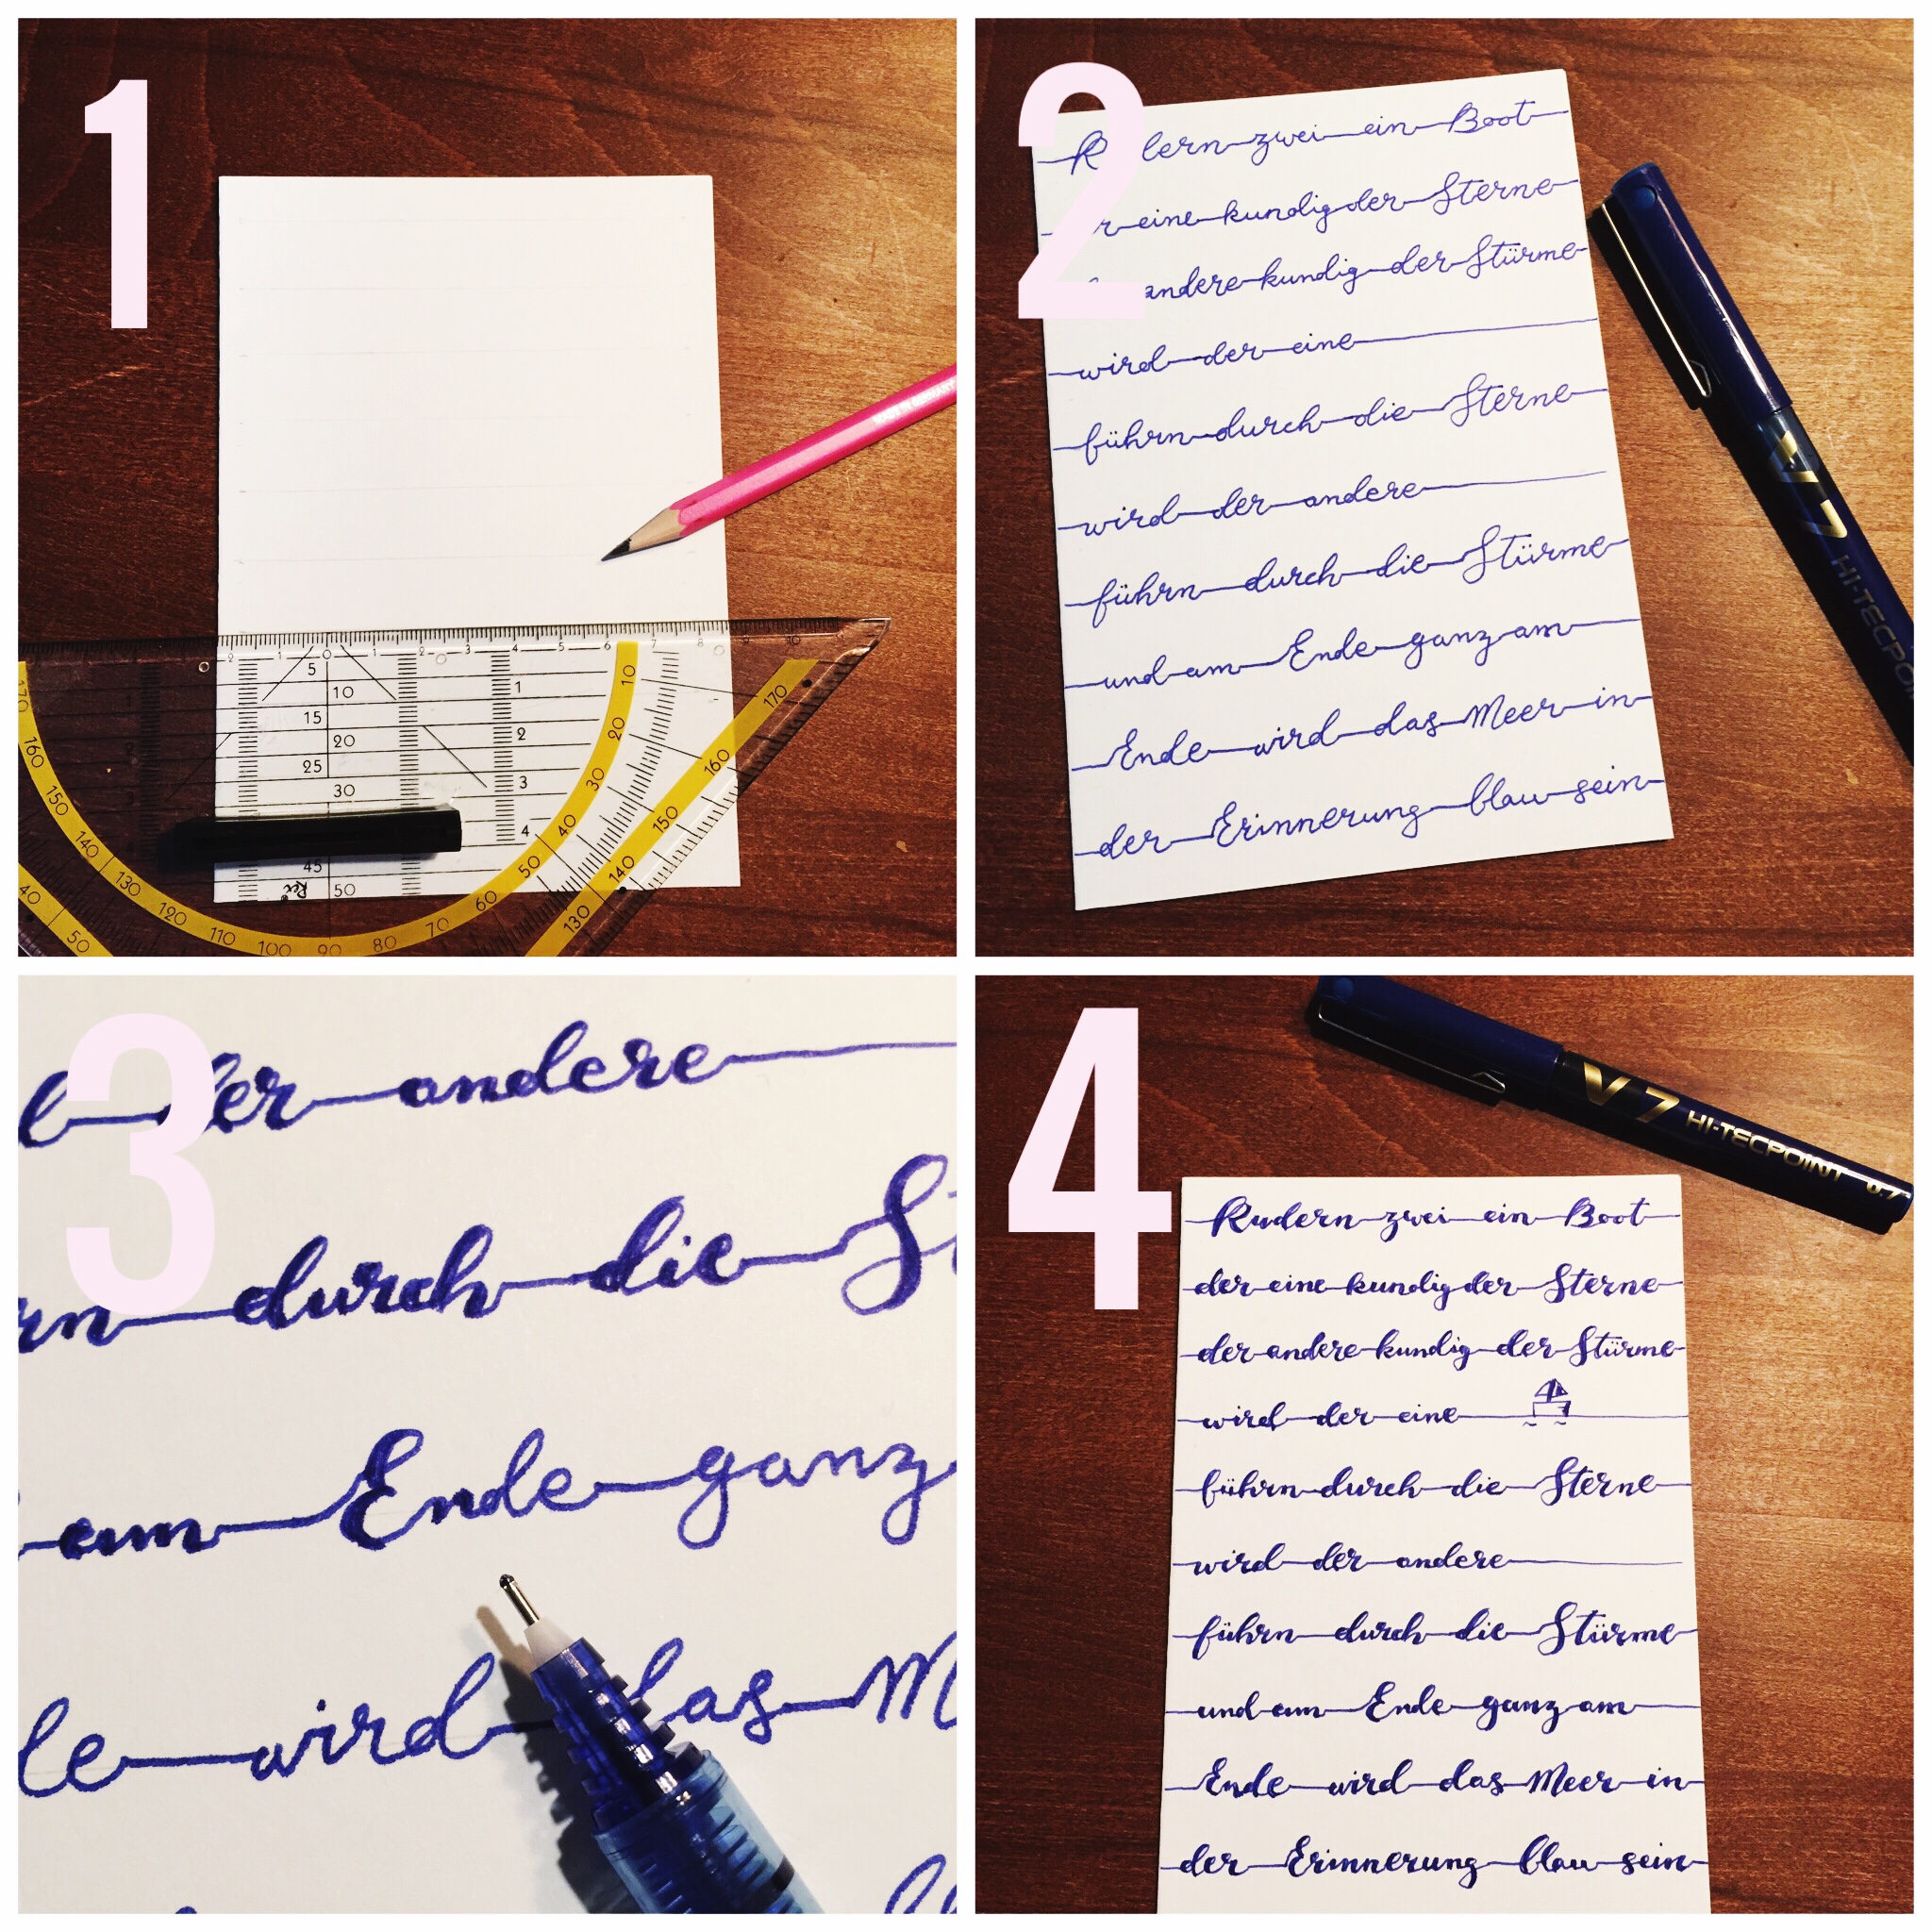 1
2
R lern zwei ein Boot
r eine kundig der Sterne
andere kundig der Stürme
wird der eine
führn durch die Sterne
wird der andere
führn durch die Stürme
und am Ende ganz am
Ende wird das Meer in
der Erinnerung blau sein
V7
HI-TECPO
3
der andere
rn durch die St
am Ende ganz
le wird das M
4
V7 HI-TECPOINT 0.7
Rudern zwei ein Boot
der eine kundig der Sterne
der andere kundig der Stürme
wird der eine
führn durch die Sterne
wird der andere
führn durch die Stürme
und am Ende ganz am
Ende wird das Meer in
der Erinnerung blau sein